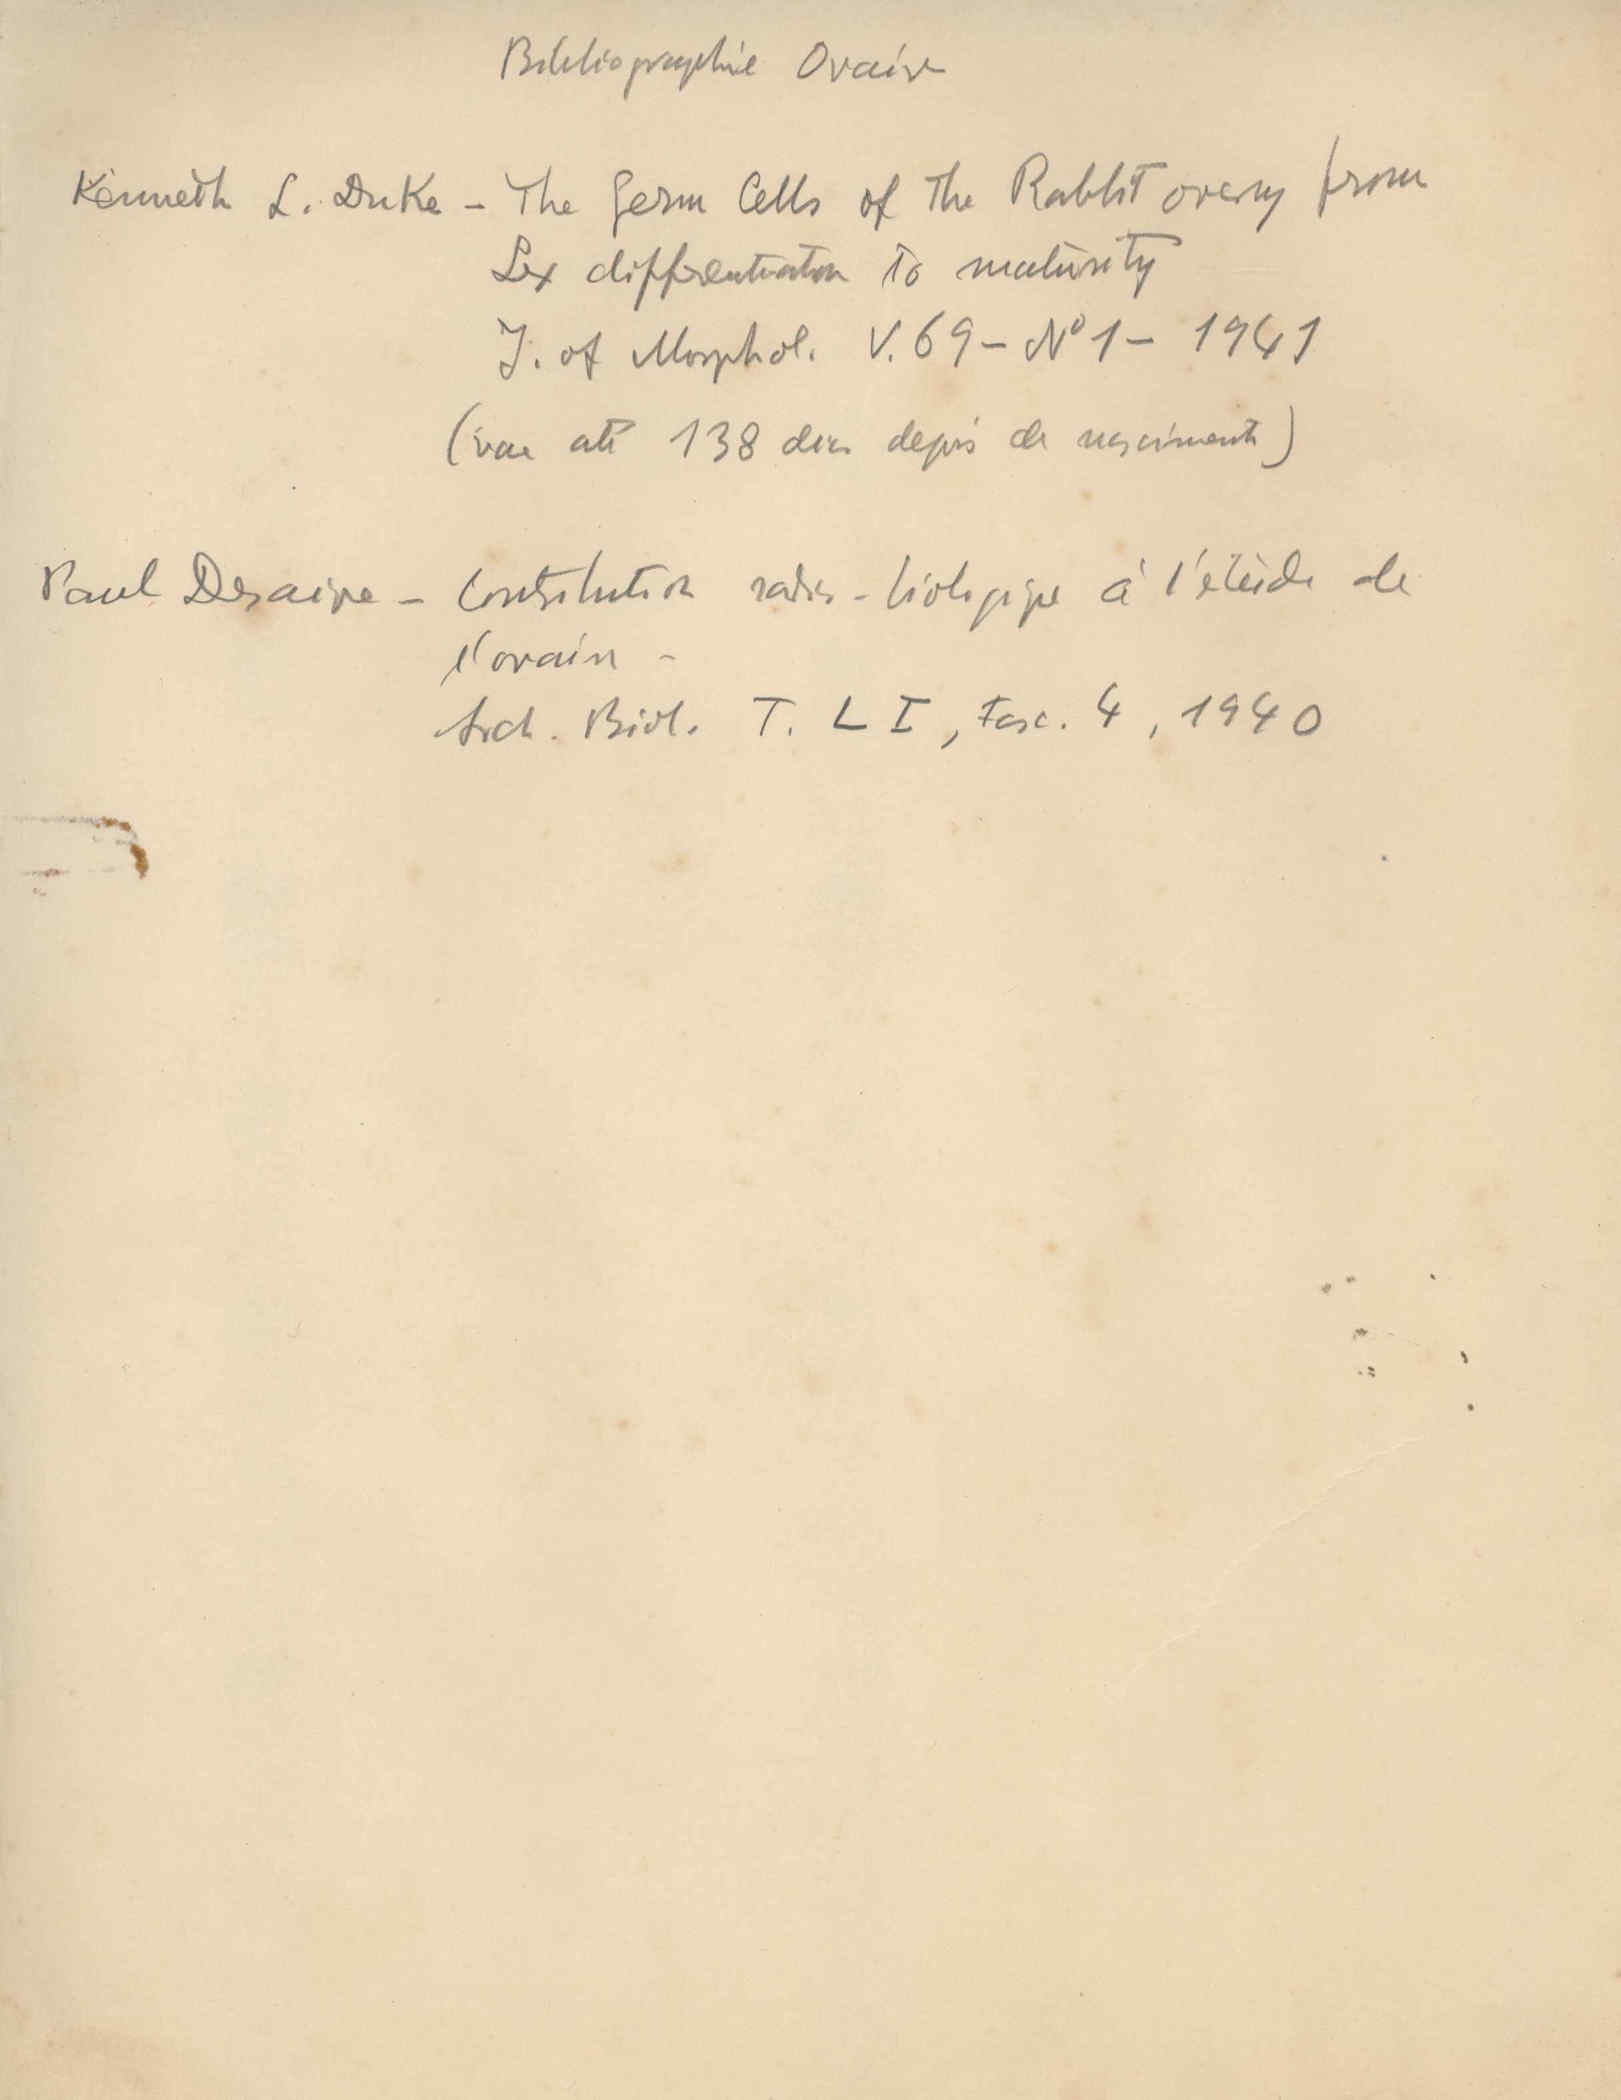 Bibliographie Ovaire
Kenneth L. Duke - The Germ Cells of The Rabbit ovary from
Sex differentiation To maturity
J. of Morphol. V. 69 - Nº 1 - 1941
(vae até 138 dias depois de nascimento)
Paul Desaive - Contribution radio-biologique à l'étude de
l'ovaire -
Arch. Biol. T. LI, Fasc. 4, 1940